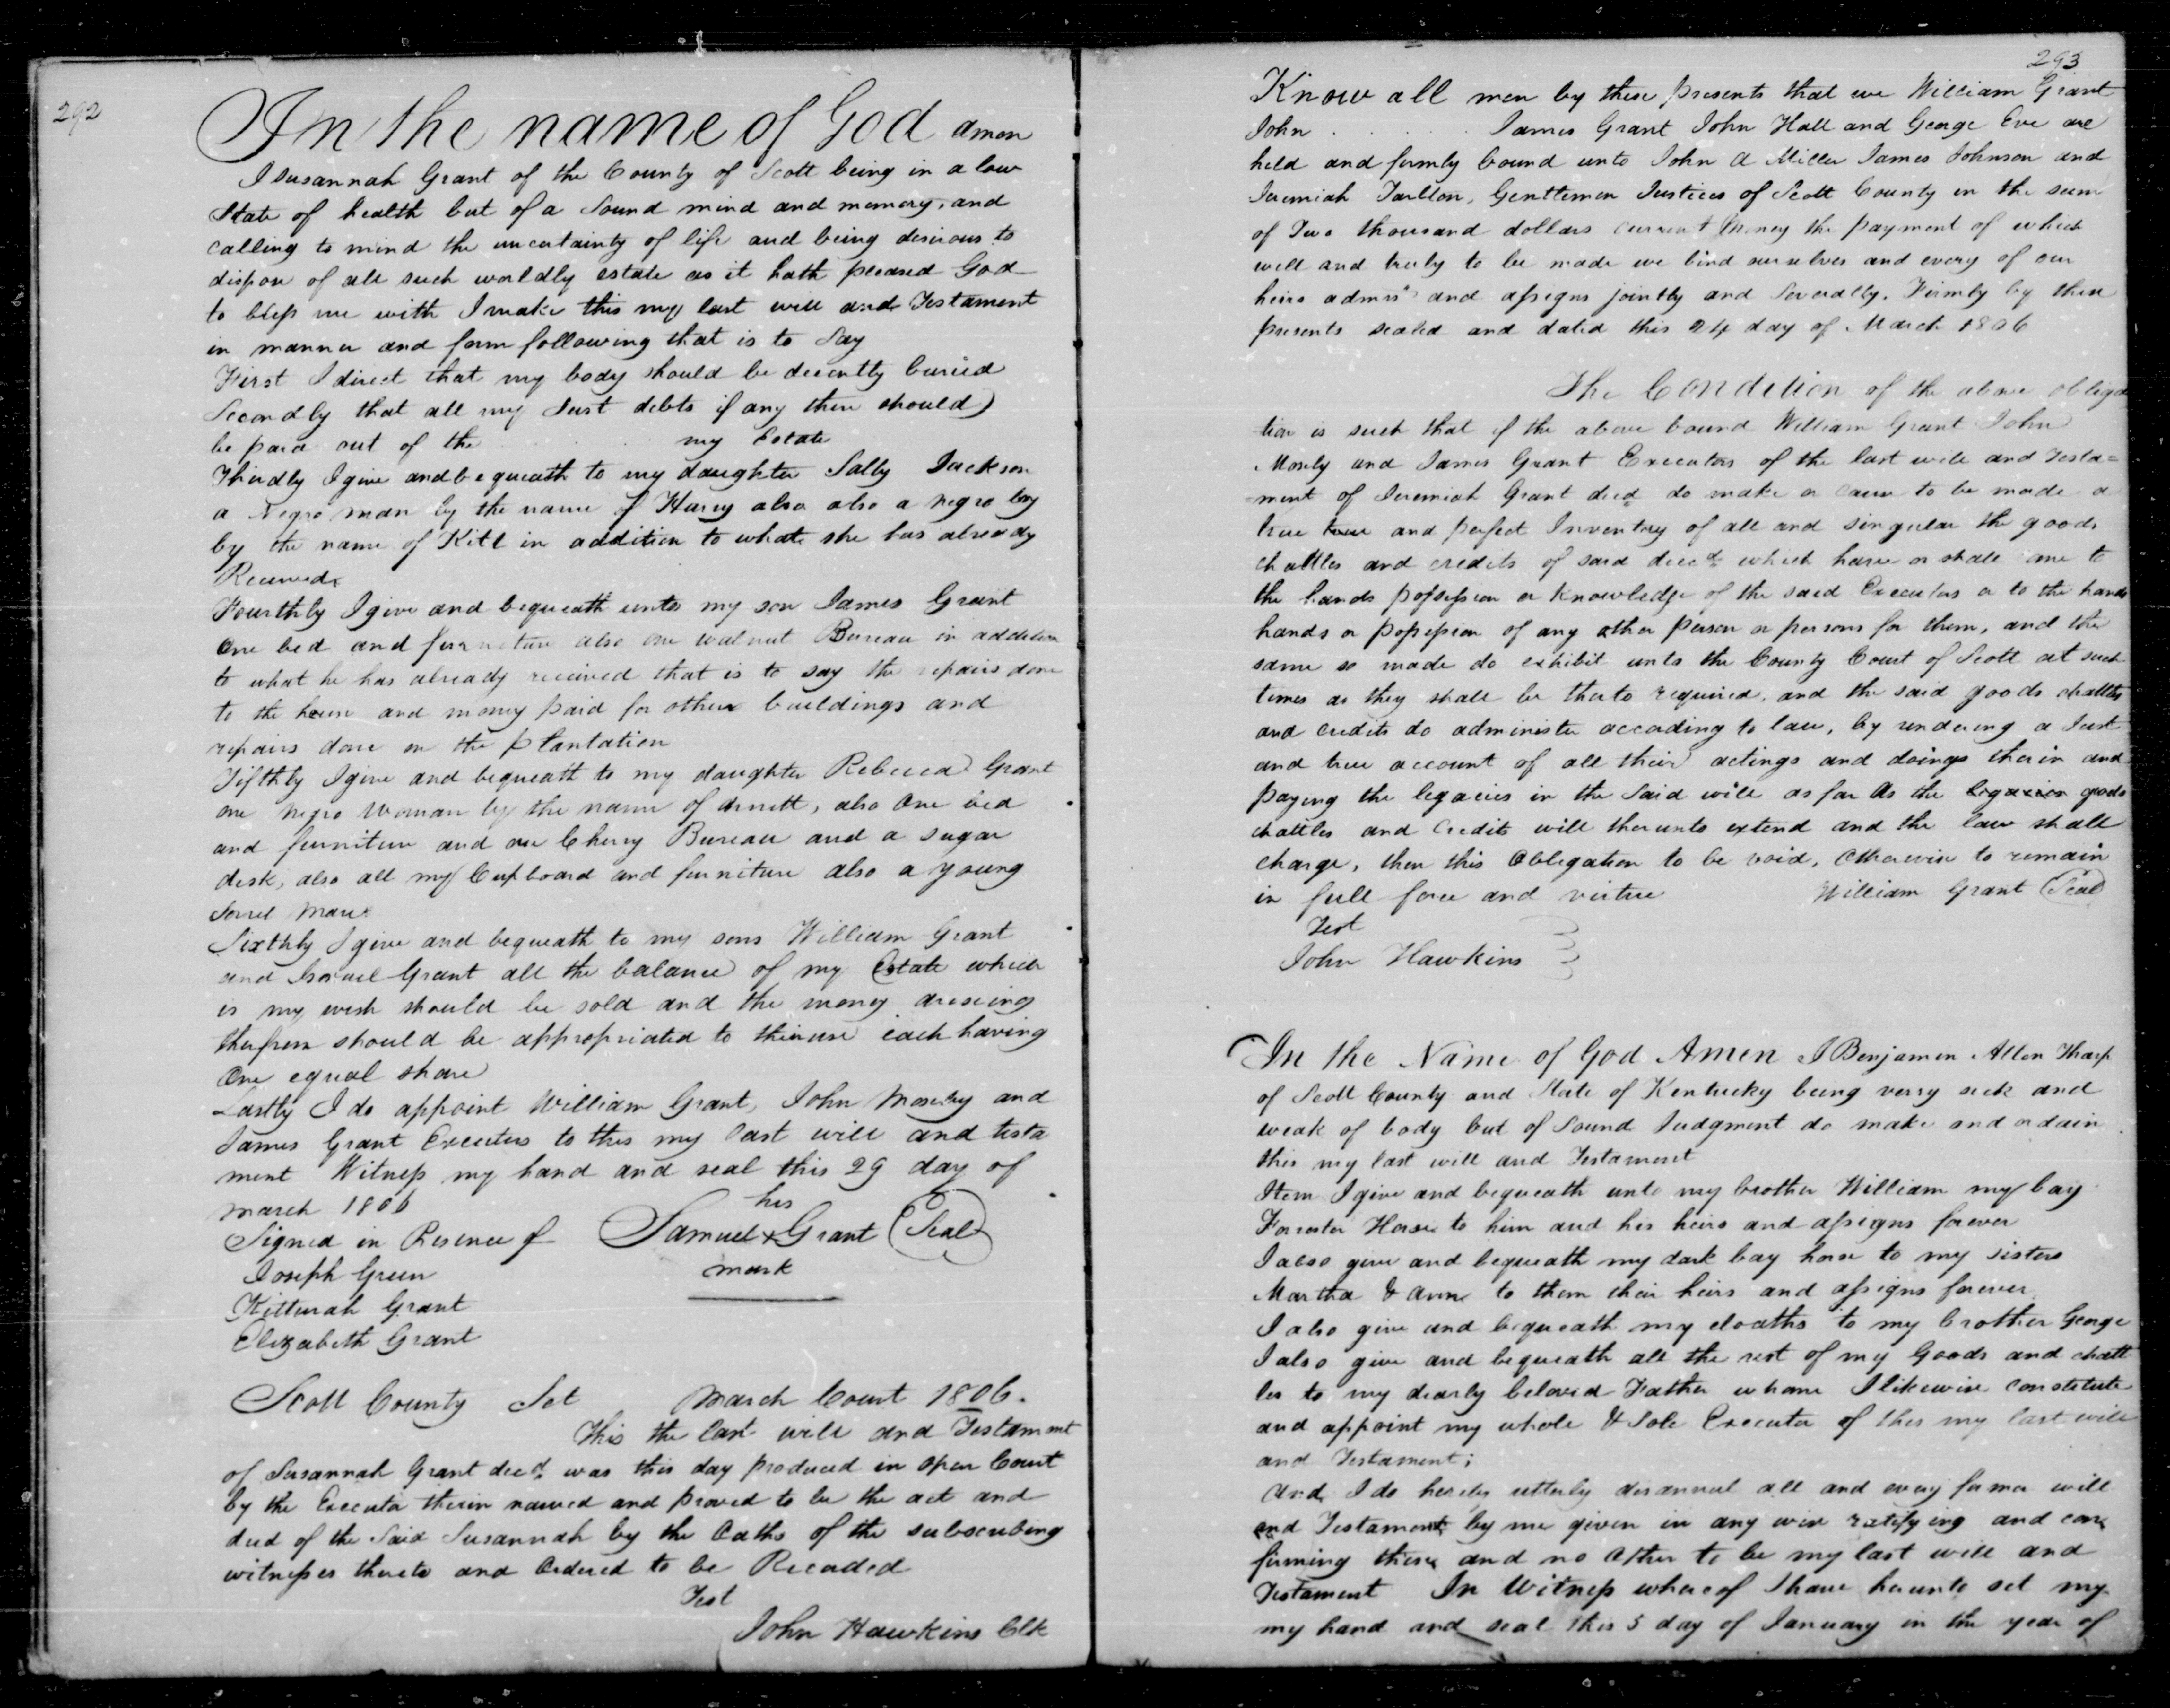 292
In the name of God amen
I Susannah Grant of the County of Scott being in a low
State of health but of a Sound mind and memory, and
calling to mind the uncertainty of life and being desirous to
dispose of all such worldly estate as it hath pleased God
to bless me with I make this my last will and Testament
in manner and form following that is to Say
First I direct that my body should be decently buried
Secondly that all my Just debts if any there should)
be paid out of the . . . . my Estate
Thirdly I give and bequeath to my daughter Sally Jackson
a Negro man by the name of Harry also also a negro boy
by the name of Kitt in addition to what she has already
Received
Fourthly I give and bequeath unto my son James Grant
One bed and furniture also one walnut Bureau in addition
to what he has already received that is to say the repairs done
to the house and money paid for other buildings and
repairs done on the plantation
Fifthly I give and bequeath to my daughter Rebecca Grant
one negro woman by the name of , also One bed
and furniture and one Cherry Bureau and a sugar
desk, also all my Cupboard and furniture also a young
Sorrel Mare
Sixthly I give and bequeath to my sons William Grant
and Israel Grant all the balance of my Estate which
is my wish should be sold and the money areseing
therefrom should be appropriated to their use each having
One equal share
Lastly I do appoint William Grant, John Moseby and
James Grant Executors to this my last will and testa
ment Witness my hand and seal this 29 day of
march 1806
his
Signed in Presence of Samuel + Grant (Seal)
Joseph Green mark
Kitturah Grant
Elizabeth Grant
Scott County Sct March Court 1806.
This the last will and Testament
of Susannah Grant decd. was this day produced in open Court
by the Executor therein named and proved to be the act and
deed of the Said Susannah by the Oaths of the subscribing
witnesses thereto and Ordered to be Recorded
Test
John Hawkins Clk
293
Know all men by these presents that we William Grant
John . . . . . James Grant John Hall and George Eve are
held and firmly bound unto John A Miller James Johnson and
Jeremiah Tarlton, Genttlemen Justices of Scott County in the sum
of Two thousand dollars current Money the payment of which
well and truly to be made we bind ourselves and every of our
heirs admrs and assigns jointly and Severally. Firmly by these
presents sealed and dated this 24 day of March 1806
The Condition of the above obliga
tion is such that if the above bound William Grant John
Mosely and James Grant Executors of the last will and Testa=
=ment of Jeremiah Grant decd do make or cause to be made a
true true and perfect Inventory of all and singular the goods
chattles and credits of said decd. which have or shall come to
the hands possession or knowledge of the said Executors or to the hands
hands or possession of any other person or persons for them, and the
same so made do exhibit unto the County Court of Scott at such
times as they shall be thereto required, and the said goods chattles
and credits do administer according to law, by rendering a Just
and true account of all their actings and doings therein and
paying the legacies in the Said will as far As the legacies goods
chattles and Credits will thereunto extend and the law shall
charge, then this Obligation to be void, Otherwise to remain
in full force and virtue William Grant (Seal)
Test
John Hawkins
In the Name of God Amen I Benjamin Allen Tharp
of Scott County and State of Kentucky being verry sick and
weak of body but of Sound Judgment do make and ordain
this my last will and Testament
Item I give and bequeath unto my brother William my bay
Forrester Horse to him and his heirs and assigns forever
I also give and bequeath my dark bay horse to my sisters
Martha & Anne to them their heirs and assigns forever
I also give and bequeath my cloaths to my brother George
I also give and bequeath all the rest of my Goods and chatt
les to my dearly beloved Father whome I likewise constitute
and appoint my whole & Sole Executor of this my last will
and Testament;
And I do hereby utterly disannul all and every former will
and Testament by me given in any wise ratifying and con
firming these and no other to be my last will and
Testament In Witness whereof I have hereunto set my
my hand and seal this 5 day of January in the year of